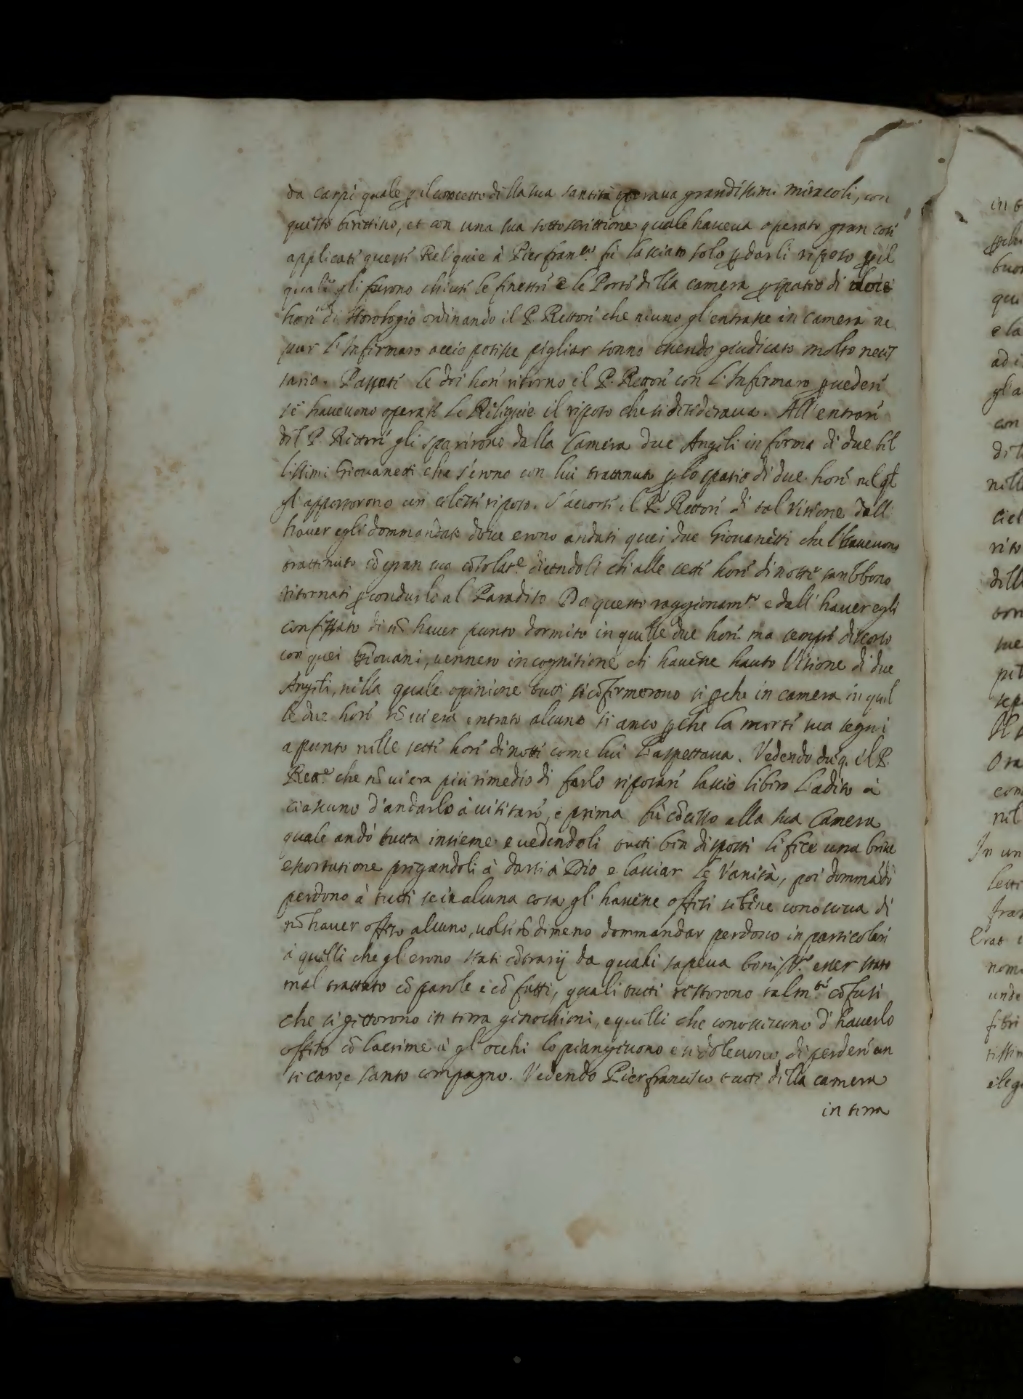 da Carpi quale p il concetto della sua santità operaua grandissimi miracoli, con
questo birettino, et con una sua sottoscrittione quale haueua operato gran cose
applicati questi Reliquie à Pierfran.co fù lasciato solo p darli riposo p il
quale gli furono chiuse le finestre e le Porte della camera p spatio di doie
hore di Horologio ordinando il P. Rettore che niuno gl'entrasse in camera ne
pur l'Infirmaro acciò potisse pigliar sonno essendo giudicato molto neces
sario. Passate le doi hore ritorno il P. Rettore con l'Infirmaro p uedere
se haueuono operato le Reliquie il riposo che si desideraua. All'entrare
del P. Rettore gli sparirono dalla Camera due Angeli in forma di due bel
lissimi Giouanetti che s'erono con lui trattenuti p lo spatio di due hore nel ql
gl'apportorono un celeste riposo. S'accorse il P. Rettore di tal Visione dall
hauer egli dommandato doue erono andati quei due Giouanetti che l'haueuono
trattenuto cō gran sua cōsolat.e dicendoli che alle sette hore di notte sarebbono
ritornati p condurlo al Paradiso. Da questi raggionam.ti e dall'hauer egli
confessato di nō hauer punto dormito in quelle due hore ma sempre discorso
con quei Giouani, uennero in cognitione che hauesse hauto Visione di due
Angeli, nella quale opinione tutti si cōfirmorono si p che in camera in quel
le due hore nō ui era entrato alcuno si anco p che la morte sua segui
a punto nelle sette hore di notte come lui l'aspettaua. Vedendo dūq. il P.
Rett.e che nō ui era più rimedio di farlo riposare lasciò libero l'adito à
ciascuno d'andarlo à uisitare, e prima fù cōcesso alla sua Camera
quale andò tutta insieme e uedendoli tutti ben disposti li fece una breue
esortatione pregandoli à darsi à Dio e lasciar le Vanità, poi dommādò
perdono à tutti se in alcuna cosa gl'hauesse offesi sebene conosceua di
nō hauer offeso alcuno, uolse nōdimeno dommandar perdono in particolare
à quelli che gl'erono stati cōtrarij da quali sapeua esser stato
mal trattato cō parole e cō fatti, quali tutti restorono talm.te cōfusi
che si gettorono in terra genochioni, e quelli che conosceuono d'hauerlo
offeso cō lacrime à gl'occhi lo piangeuono e si doleuono di perdere un
si caro, e santo compagno. Vedendo Pierfrancesco tutti della camera
in terra